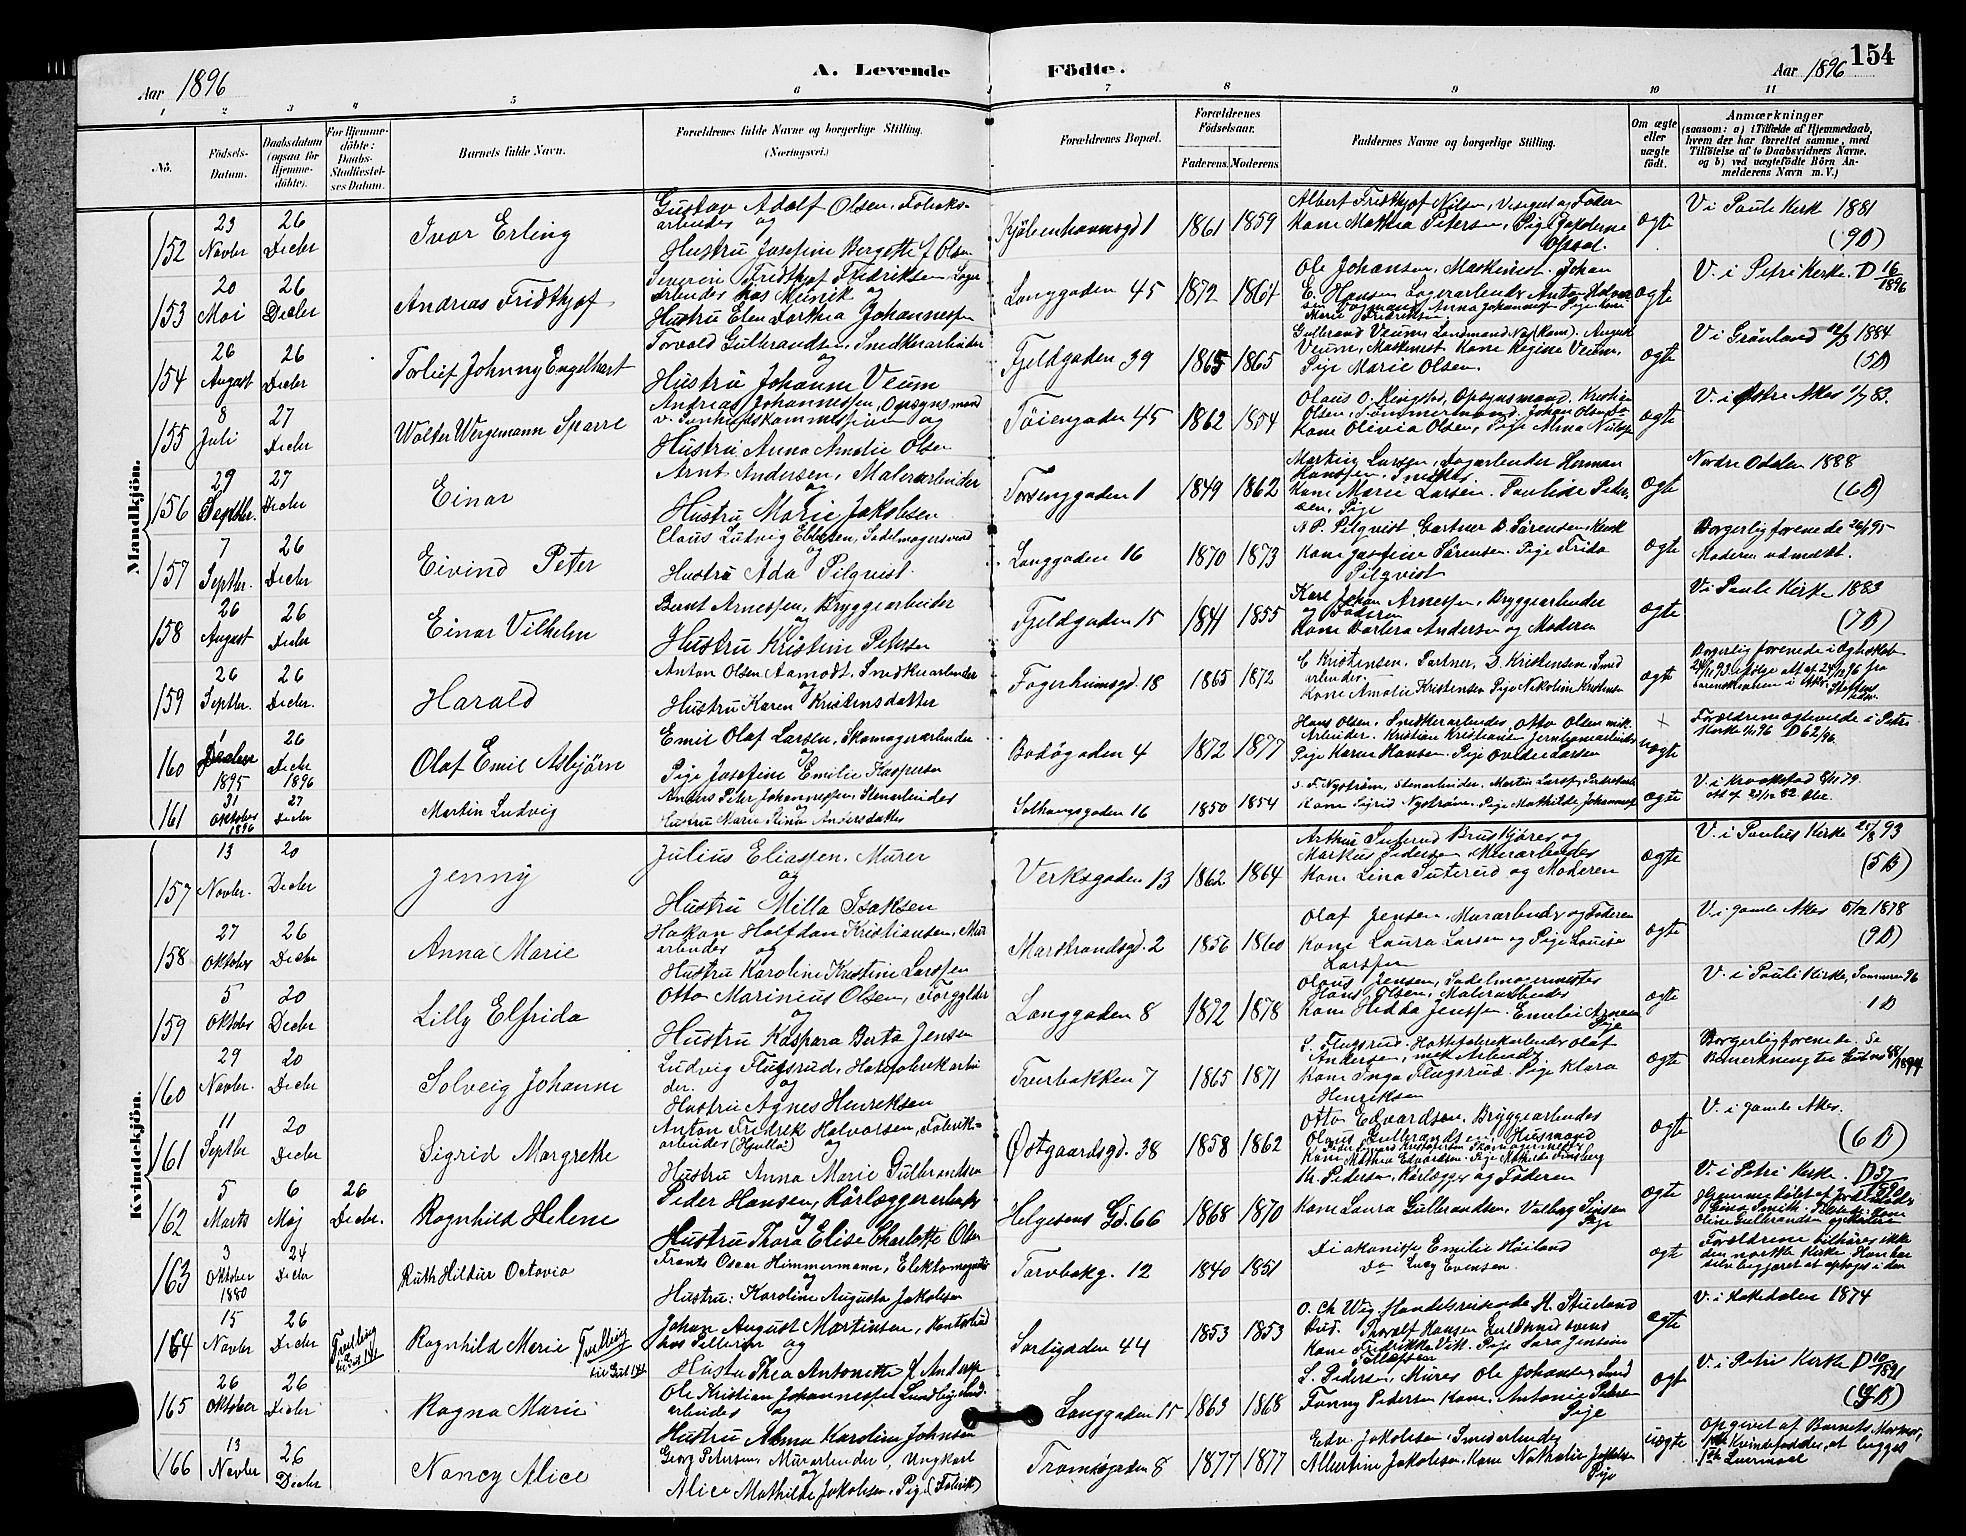 154
Aar 1896
A. Levende Födte.
Aar 1896
1 2 3 4 5 6 7 8 9 10 11
No.
Födsels-Datum.
Daabsdatum (ogsaa for Hjemmedöbte).
For Hjemmedöbte: Daabs-Stadfæstelses Datum.
Barnets fulde Navn.
Forældrenes fulde Navne og borgerlige Stilling.
(Næringsvei.)
Forældrenes Bopæl.
Forældrenes Födselsaar.
Faderens. Moderens.
Faddernes Navne og borgerlige Stilling.
Om ægte eller uægte födt.
Anmærkninger
(saasom: a) i Tilfælde af Hjemmedaab, hvem der har forrettet samme, med Tilföielse af to Daabsvidners Navne. og b) ved uægtefödte Börn Anmelderens Navn m. V.)
Mandkjön.
152 23 Novbr 26 Decbr Ivar Erling
Gustav Adolf Olsen, Fabriksarbeider og
Hustru Josefine Bergette f. Olsen
Kjöbenhavnsgd 1 1861 1859
Kone Mathea Petersen, Pige
ægte
V i Pauls Kirk 1881
(9B)
153 20 Mai 26 Decbr Andreas Fridthjof
Severin Fridthjof Fredriksen, Lagerarbeider hos Munik og
Hustru Elen Dorthea Johannessen
Langgaden 45 1872 1864
Ole Johansen, Maskinist. Johan
E. Hansen Lagerarbeider
Marie Fredriksen
ægte
V. i Petri Kirke. D 16/1896
154 26 August 26 Decbr Torleif Johnny Engelhart
Torvald Gulbrandsen, Snedkerarbeider og
Hustru Johanne Veum
Fjeldgaden 39 1865 1865
Gulbrand Veum, Landmand
Veum, Maskinist. Kone Regine Veum,
Pige Marie Olsen.
ægte
V i Grönland 1884
(5B)
155 8 Juli 27 Decbr Walter Wergemann Sparre
Andreas Johannessen, Opsynsmand
v. Sundhedskommissionen og
Hustru Anna Amalie Olsen
Töiengaden 45 1862 1854
Kone Olivia Olsen, Pige Alma
ægte
V. i Östre Aker 83.
156 29 Septbr. 27 Decbr Einar
Arnt Andersen, Malerarbeider
og
Hustru Marie Jakobsen
Torsenggaden 1 1849 1862
Martin Larsen, Dagarbeider Herman
Hansen, Snedker
Kone Marie Larsen. Pauline Petersen, Pige
ægte
Nordre Odalen 1888
(6B)
157 7 Septbr. 26 Decbr Eivind Peter
Claus Ludvig Ellefsen, Sadelmagersvend
og
Hustru Ada Pilqvist.
Langgaden 16 1870 1873
N. P. Pilqvist Gartner B. Sörensen, Kusk
Kone Josefine Sörensen. Pige Frida
Pilqvist
ægte
Borgerlig forenede 26/95
Moderen udmeldt.
158 26 August 26 Decbr Einar Vilhelm
Bernt Arnessen, Bryggearbeider
og
Hustru Kristine Petersen
Fjeldgaden 15 1841 1855
Karl Johan Arnessen, Bryggearbeider
og Faderen
Kone Barbra Andersen og Moderen
ægte
V i Pauls Kirke 1883
(7B)
159 26 Septbr. 26 Decbr. Harald
Anton Olsen Aamodt, Snedkerarbeider
og
Hustru Karen Kristensdatter
Fagerheimsgd. 18 1865 1872
C Kristensen, Partner, D. Kristensen, Smedarbeider.
Kone Amalie Kristensen Pige Nikoline Kristensen
ægte
Borgerlig forenede i Ægteskab
160 1 Decbr 1895 26 Decbr 1896 Olaf Emil Asbjörn
Emil Olaf Larsen, Skomagerarbeider
og
Pige Josefine Emilie Kaspersen
Bodögaden 4 1872 1877
Hans Olsen, Snedkerarbeider, Otto Olsen mek.
Arbeider. Kristian Kristiansen Jernbanearbeider
Pige Karen Hansen. Pige Ovidia Larsen
× uægte
Forældrene ægteviede i Petri
Kirke 96 D 62/96.
161 31 Oktober 1896 27 Decbr Martin Ludvig
Anders Peter Johannessen, Stenarbeider
og
Hustru Maria Stina Andersdatter
Solhaugsgaden 16 1850 1854
S. F. Nyström, Stenarbeider. Martin Larsen,
Kone Sigrid Nyström. Pige Mathilde Johannessen
ægte
V. i Krokstad 8/11 79.
Kvindekjön.
157 13 Novbr. 20 Decbr Jenny
Julius Eliassen, Murer
og
Hustru Milla Isaksen
Verksgaden 13 1862 1864
Arthur Suterud Bruskjörer og
Markus Pedersen Murarbeider
Kone Lina Suterud og Moderen
ægte
V. i Paulus Kirke 25/8 93
(5B)
158 27 Oktober 26 Decbr Anna Marie
Hakon Halfdan Kristiansen, Murarbeider og
Hustru Karoline Kristine Larssen
Marstrandsgd. 2 1856 1860
Olaf Jensen, Murarbeider og Faderen
Kone Laura Larsen og Pige Louise
Larssen
ægte
V. i gamle Aker 5/12 1878
(9B)
159 5 Oktober 20 Decbr Lilly Elfrida
Otto Marinius Olsen, Forgylder
og
Hustru Kaspara Berta Jensen
Langgaden 8 1872 1878
Olaus Jensen, Sadelmagermester
Hans Olsen, Malerarbeider
Kone Hedda Jenssen. Emelie Arnesen
Pige
ægte
V. i Pauli Kirke, Sommeren 96
1B
160 29 Novbr. 20 Decbr Solveig Johanne
Ludvig Flugsrud, Hattefabrikarbeider. og
Hustru Agnes Henriksen
Tverbakken 7 1865 1871
S. Flugsrud. Hattefabrikarbeider Olaf
Andersen, mek Arbeider
Kone Inga Flugsrud. Pige Klara
Henriksen
ægte
Borgerlig forenede. Se
161 11 Septbr 20 Decbr Sigrid Margrethe
Anton Fredrik Halvorsen, Fabrikarbeider (Hjula) og
Hustru Anna Marie Gulbrandsen
Östgaardsgd. 38 1858 1862
Otto Edvardsen. Bryggearbeider
Olaus Gulbrandsen, Husmand
Kone Mathea Edvardsen. Pige Mathilde Finsberg
ægte
V. i gamle Aker.
(6B)
162 5 Marts 6 Maj 26 Decbr. Ragnhild Helene
Peder Hansen, Rörlæggerarbeider
og
Hustru Thora Elise Charlotte Olsen
Helgesens Gd. 66 1868 1870
Kr. Pedersen, Rörlægger og Faderen
Kone Laura Gulbrandsen, Valborg Simsen
Pige
ægte
V. i Petri Kirke.
Hjemmedöbt af Jordemoder
163 3 Oktober 1880 24 Decbr Ruth Hildur Octavia
Frants Oscar Himmermann, Elektomagnetisör
og
Hustru: Karoline Augusta Jakobsen
Torvbakg. 12 1840 1851
Diakonisse Emilie Höiland
Do Lucy Evensen.
ægte
Forældrene tilhörer ikke
den norske Kirke. Hun har
selv begjæret at optages i den
164 15 Novbr 26 Decbr Tvilling til Gut 141 Ragnhild Marie Tvilling til Gut 141
Johan August Martinsen, Kontorbud
hos Tillerin og
Hustru Thea Antonette f. Andersen
Sorligaden 44 1853 1853
O. Ch Wig, Handelsreisende H. Stueland
Bud. Thoralf Hansen
Kone Fredrikke Vik. Pige Sara Jensine
ægte
V. i Hakedalen 1874
165 26 Oktober 26 Decbr Ragna Marie
Ole Kristian Johannessen Lundby, Smedarbeider og
Hustru Alma Karoline Johnsen
Langgaden 15 1863 1868
S. Pedersen, Murer Ole Johansen, Smed
Fanny Pedersen Kone. Antonie Pedersen
Pige
ægte
V. i Petri Kirke D 10/1891
166 13 Novbr 26 Decbr Nancy Alice
Georg Petersen, Murarbeider, Ungkarl
og
Alice Mathilde Jakobsen, Pige (Fabrik)
Tromsögaden 8 1877 1877
Edv. Jakobsen, Smedarbeider
Albertine Jakobsen, Kone Nathalie Jakobsen
Pige
uægte
Opgivet af Barnets Mormor,